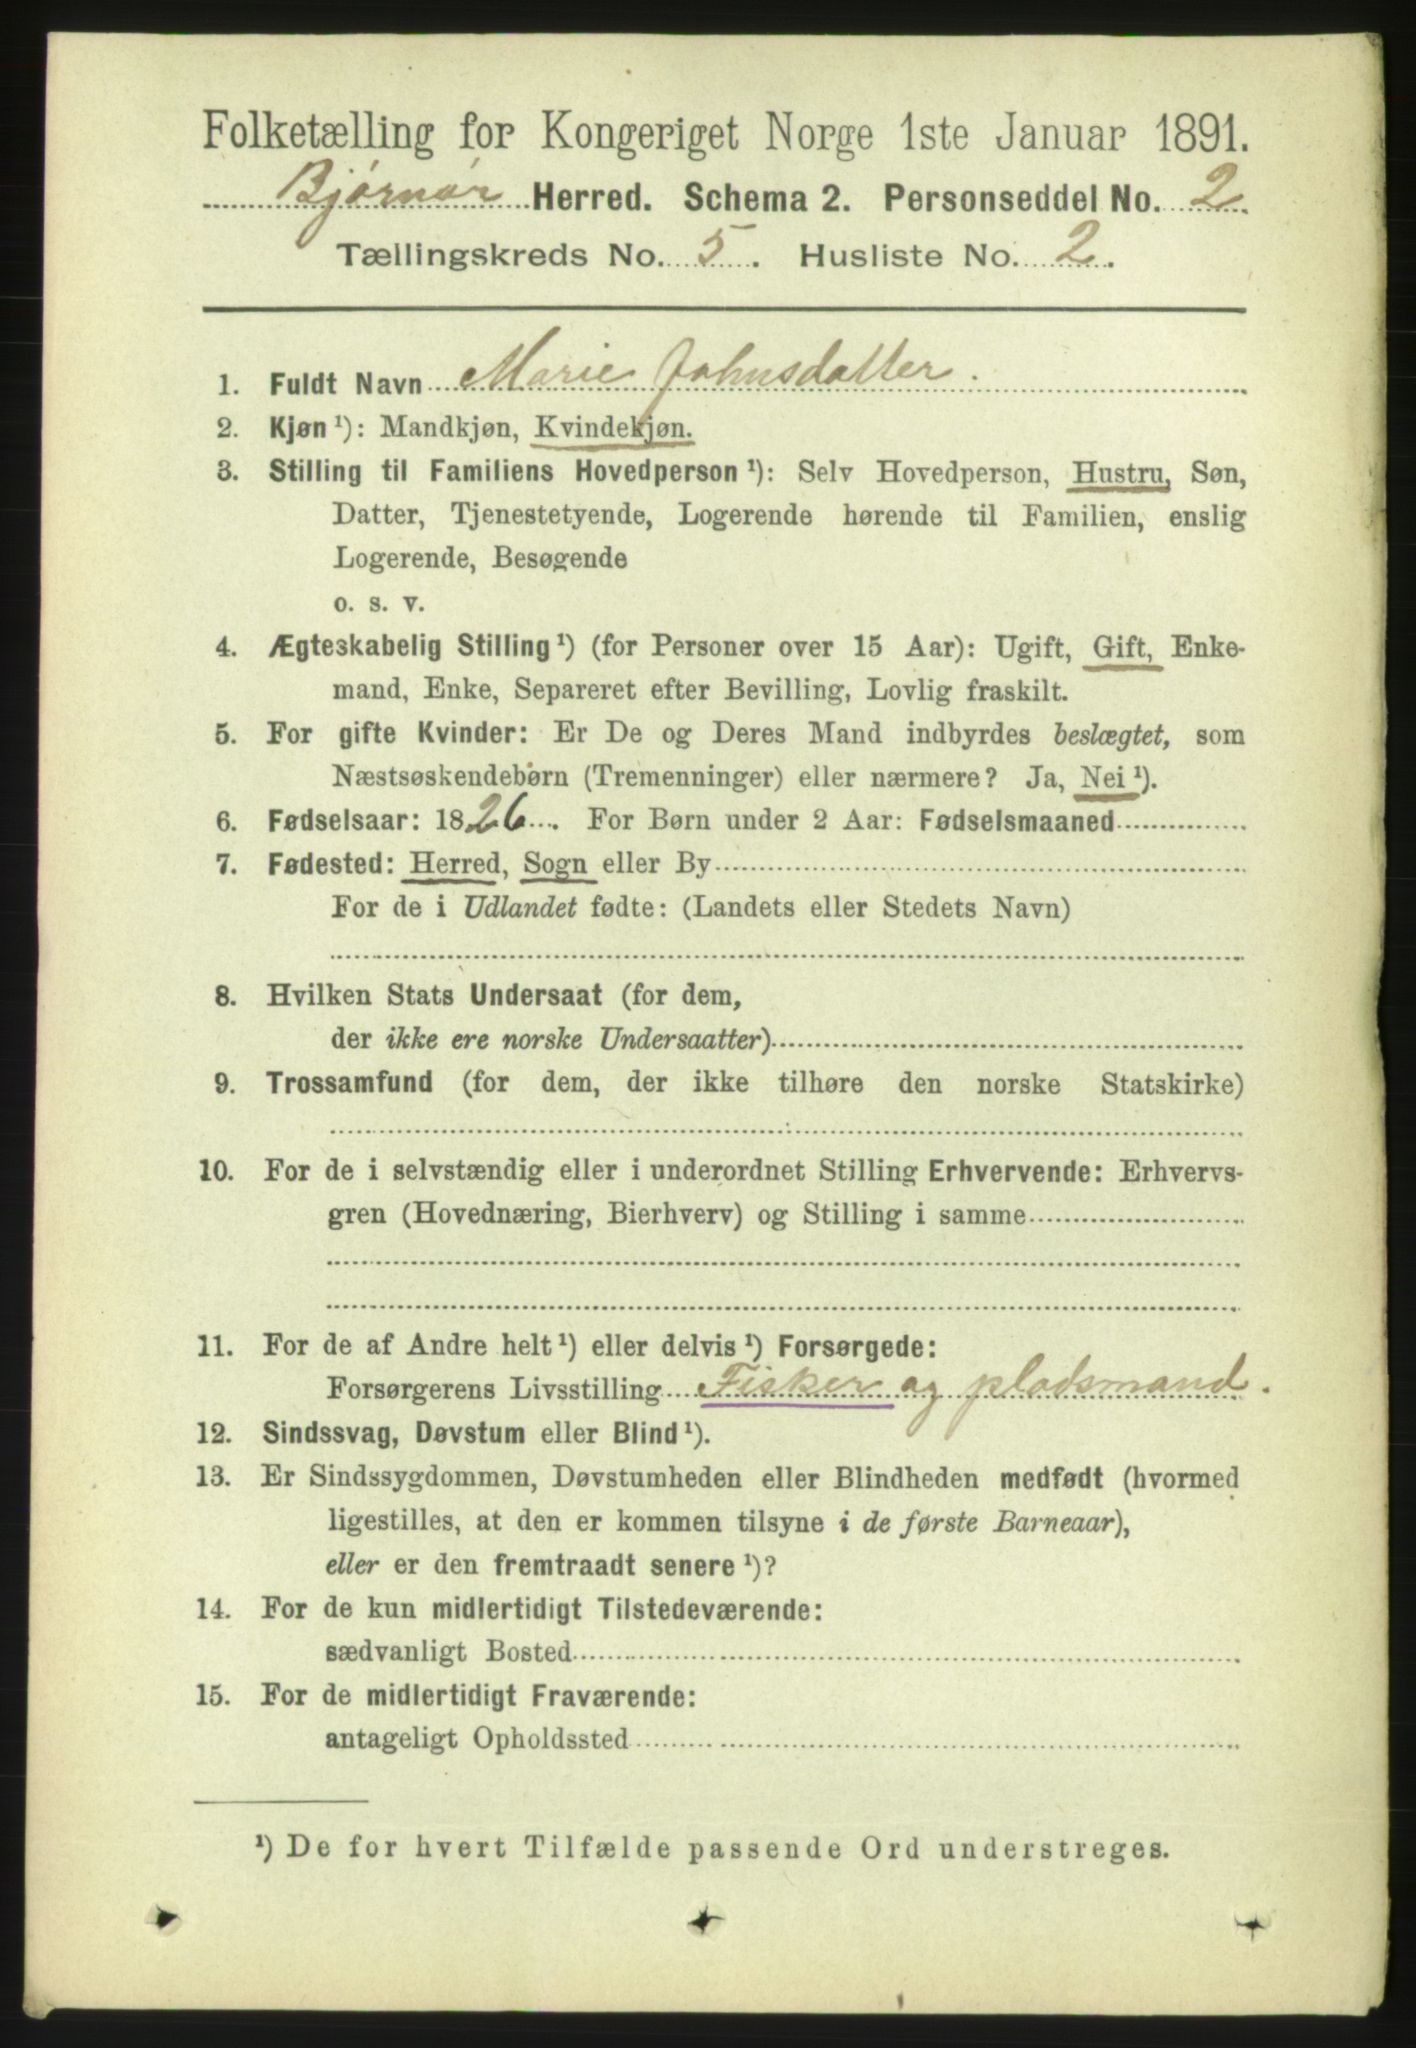 Folketælling for Kongeriget Norge 1ste Januar 1891.
Bjørnør Herred. Schema 2. Personseddel No. 2.
Tællingskreds No. 5. Husliste No. 2.
1. Fuldt Navn Marie Johnsdatter.
2. Kjøn ¹): Mandkjøn, Kvindekjøn.
3. Stilling til Familiens Hovedperson ¹): Selv Hovedperson, Hustru, Søn,
Datter, Tjenestetyende, Logerende hørende til Familien, enslig
Logerende, Besøgende
o. s. v.
4. Ægteskabelig Stilling ¹) (for Personer over 15 Aar): Ugift, Gift, Enke-
mand, Enke, Separeret efter Bevilling, Lovlig fraskilt.
5. For gifte Kvinder: Er De og Deres Mand indbyrdes beslægtet, som
Næstsøskendebørn (Tremenninger) eller nærmere? Ja, Nei ¹).
6. Fødselsaar: 1826. For Børn under 2 Aar: Fødselsmaaned
7. Fødested: Herred, Sogn eller By
For de i Udlandet fødte: (Landets eller Stedets Navn)
8. Hvilken Stats Undersaat (for dem,
der ikke ere norske Undersaatter)
9. Trossamfund (for dem, der ikke tilhøre den norske Statskirke)
10. For de i selvstændig eller i underordnet Stilling Erhvervende: Erhvervs-
gren (Hovednæring, Bierhverv) og Stilling i samme
11. For de af Andre helt ¹) eller delvis ¹) Forsørgede:
Forsørgerens Livsstilling Fisker og pladsmand.
12. Sindssvag, Døvstum eller Blind ¹).
13. Er Sindssygdommen, Døvstumheden eller Blindheden medfødt (hvormed
ligestilles, at den er kommen tilsyne i de første Barneaar),
eller er den fremtraadt senere ¹)?
14. For de kun midlertidigt Tilstedeværende:
sædvanligt Bosted
15. For de midlertidigt Fraværende:
antageligt Opholdssted
¹) De for hvert Tilfælde passende Ord understreges.